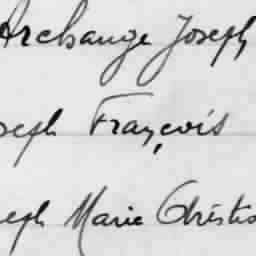 Archange Joseph
seph François
seph Marie Christo